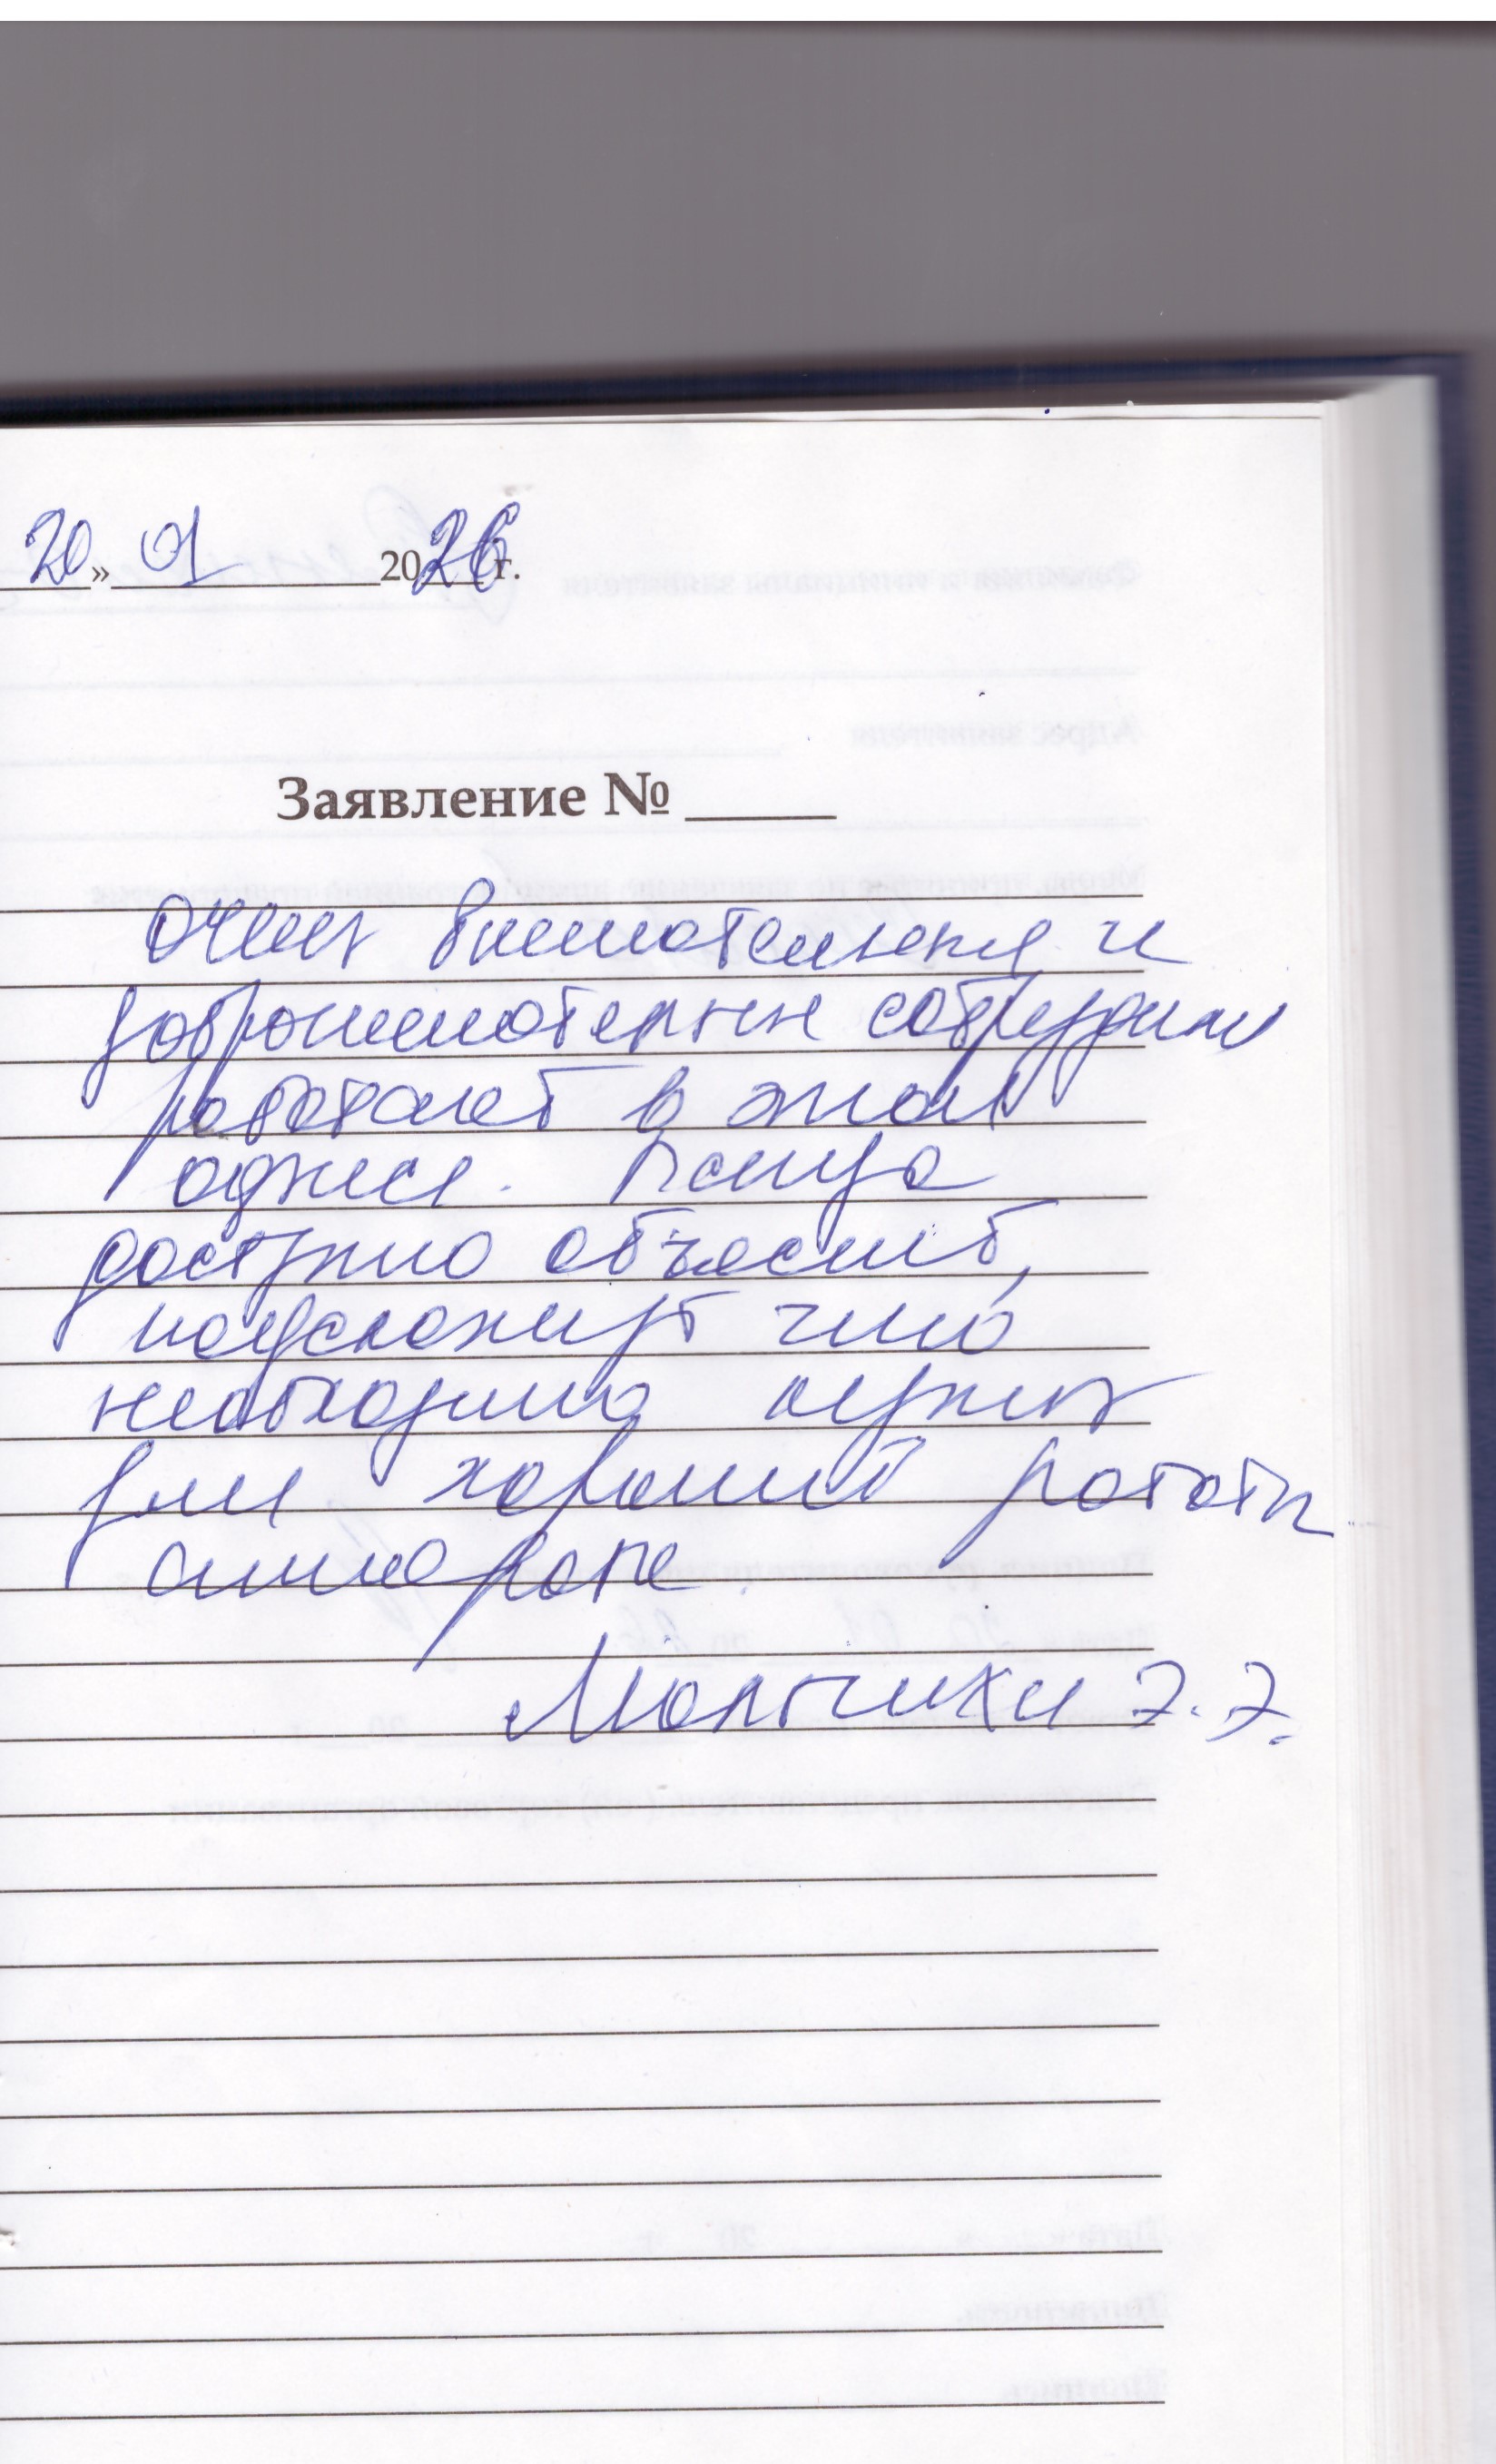 20 » 01 2026 г.
Заявление №
Очень внимательные и
доброжелательные сотрудники
работают в этом
офисе. Всегда
доступно объяснит,
подскажут что
необходимо нужно
для хорошей работы
аппарата.
Э.Э.